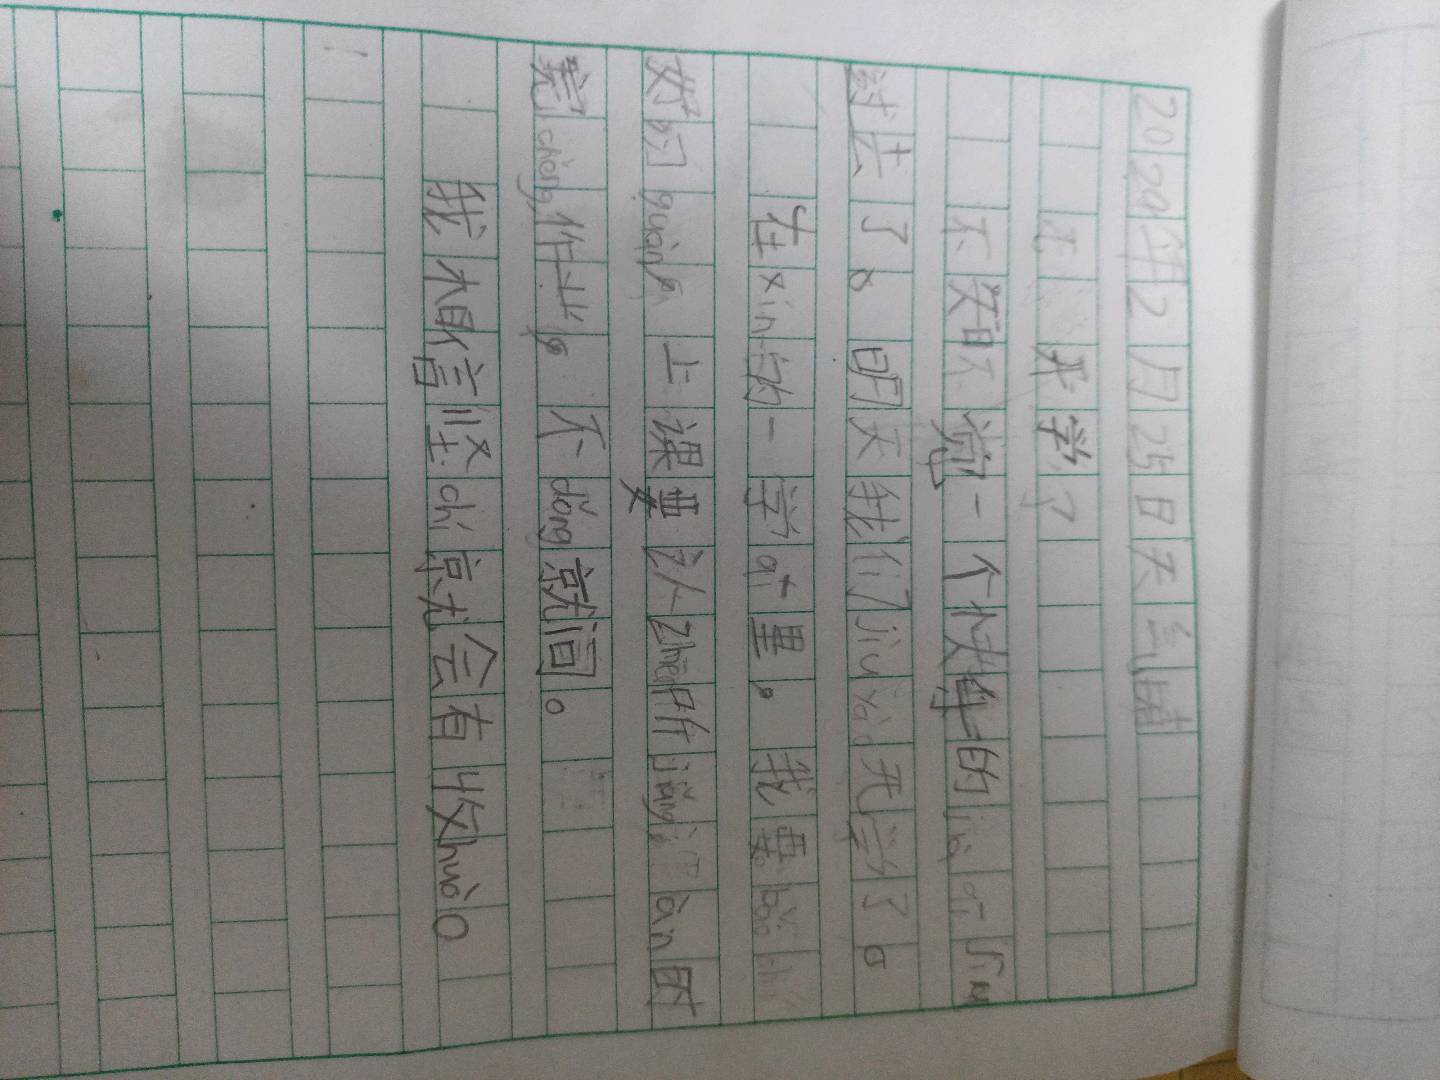 2024年2月25日天气晴
开学了
不知不觉一个快乐的jià qī jiu
过去了。明天我们jiu yào开学了。
在xin的一学qī里，我要bǎo chí
好习guàn，上课要认zhēn听jiǎng，àn时
完chéng作业，不dǒng就问。
我相信坚chí就会有收huò。